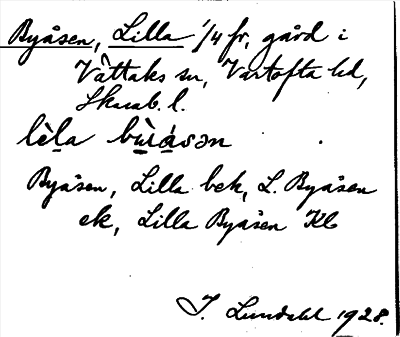 Byåsen, Lilla 1/4 fr, gård i
Våttaks sn, Vartofta hd,
Skarab. l.
lèl̲a bỳ̲rå̲sən
Byåsen, Lilla bek, L. Byåsen
ek, Lilla Byåsen Kb
J. Lundahl 1928.